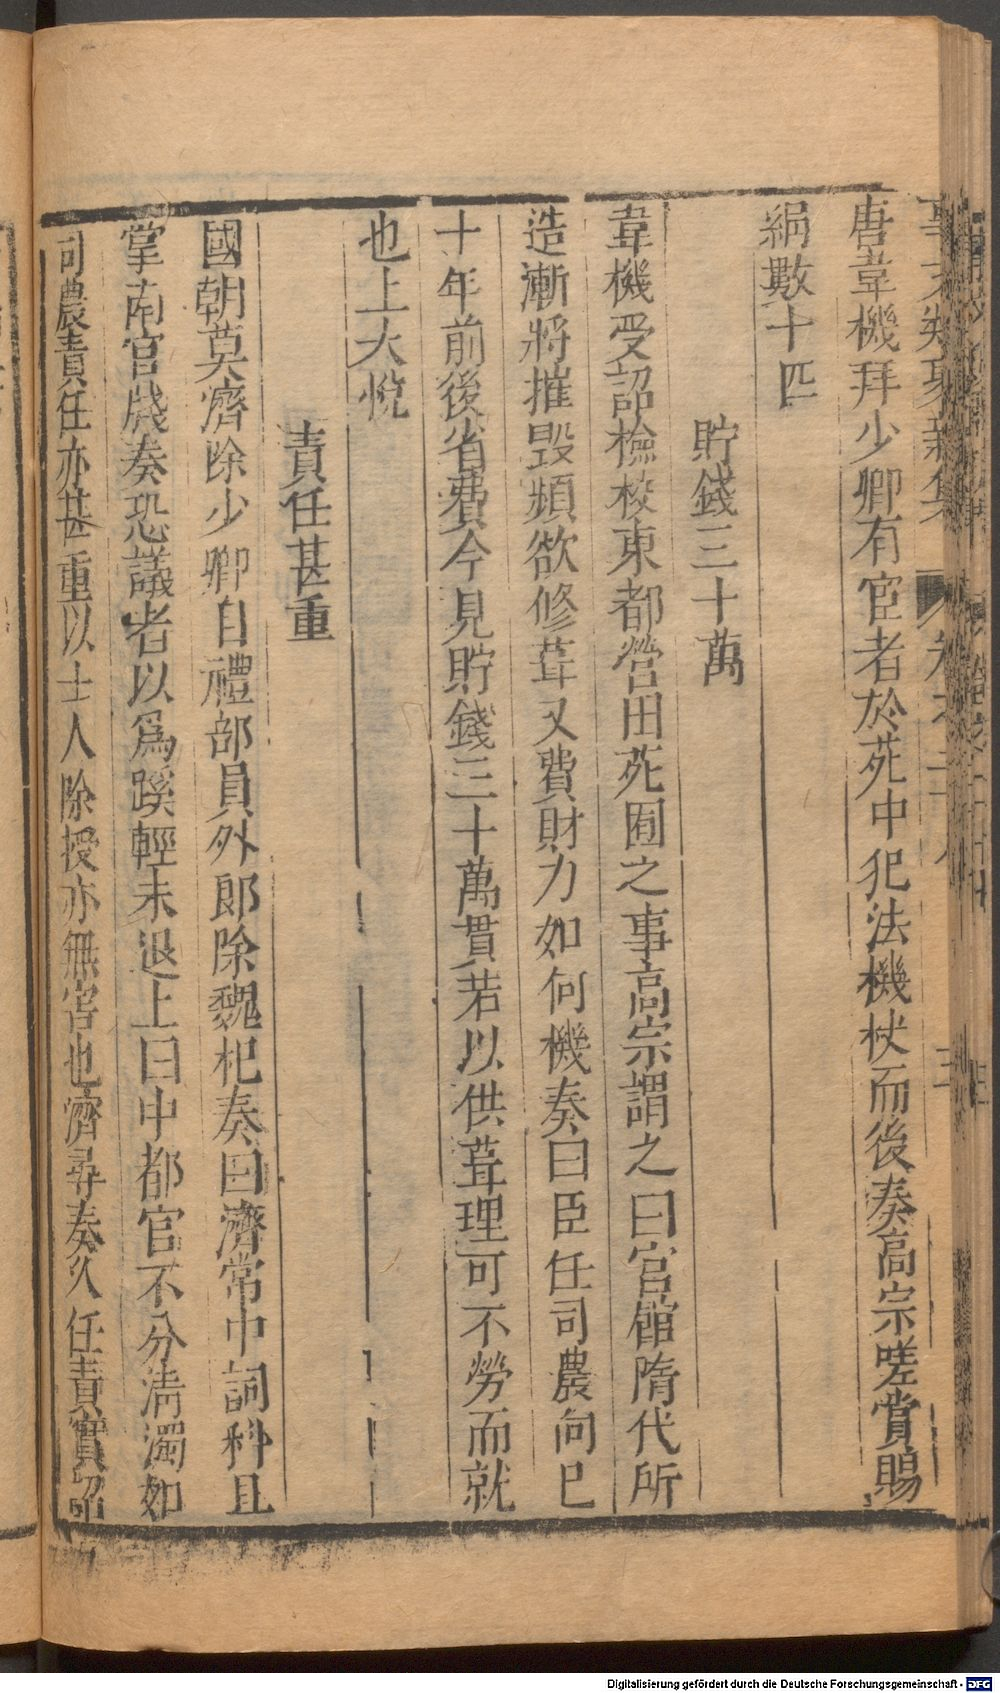 唐韋機拜少卿有宦者於苑中犯法機杖而後奏高宗嗟賞賜
絹數十匹
貯錢三十萬
韋機受詔檢校東都營田苑囿之事高宗謂之曰宫館隋代所
造漸將摧毁頻欲修葺又費財力如何機奏曰臣任司農向已
十年前後省費今見貯錢三十萬貫若以供葺理可不勞而就
也上大悅
責任甚重
國朝莫濟除少卿自禮部員外郎除魏杞奏曰濟常中詞科且
掌南宫牋奏恐議者以爲蹊輕未退上曰中都官不分淸濁如
司農責任亦甚重以士人除授亦無害也濟尋奏久任責實詔
Digitalisierung gefördert durch die Deutsche Forschungsgemeinschaft - DFG